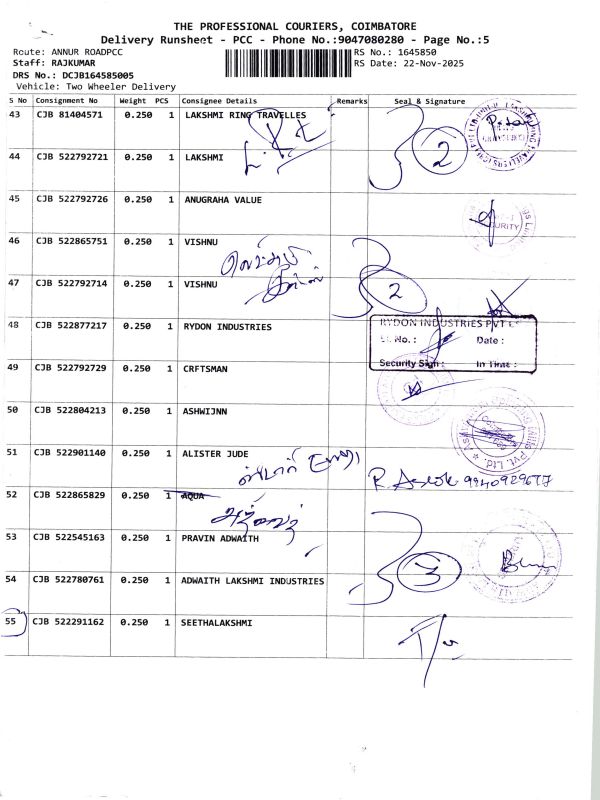 THE PROFESSIONAL COURIERS, COIMBATORE
Delivery Runsheet - PCC - Phone No.:9047080280 - Page No.:5
Route: ANNUR ROADPCC
RS No.: 1645850
Staff: RAJKUMAR
RS Date: 22-Nov-2025
DRS No.: DCJB164585005
Vehicle: Two Wheeler Delivery
S No Consignment No Weight PCS Consignee Details Remarks Seal & Signature
43 CJB 81404571 0.250 1 LAKSHMI RING TRAVELLES
2
44 CJB 522792721 0.250 1 LAKSHMI
45 CJB 522792726 0.250 1 ANUGRAHA VALUE
46 CJB 522865751 0.250 1 VISHNU
47 CJB 522792714 0.250 1 VISHNU
2
48 CJB 522877217 0.250 1 RYDON INDUSTRIES
RYDON INDUSTRIES PVT
No. : Date :
Security Sign : In Time :
49 CJB 522792729 0.250 1 CRFTSMAN
50 CJB 522804213 0.250 1 ASHWIJNN
Pvt. Ltd.
51 CJB 522901140 0.250 1 ALISTER JUDE
R Asok
52 CJB 522865829 0.250 1 AQUA
53 CJB 522545163 0.250 1 PRAVIN ADWAITH
3
54 CJB 522780761 0.250 1 ADWAITH LAKSHMI INDUSTRIES
55 CJB 522291162 0.250 1 SEETHALAKSHMI